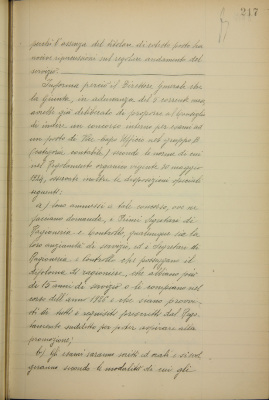 217
perchè l'assenza del titolare di codesto posto ha
nociva ripercussione sul regolare andamento del
servizio.
Informa perciò il Direttore Generale che
la Giunta, in adunanza del 2 corrente mese,
avrebbe già deliberato di proporre al Consiglio
di indire un concorso interno per esami ad
un posto di Vice Capo Ufficio nel gruppo B
(categoria contabile) secondo le norme di cui
nel Regolamento organico vigente 30 maggio
1924, osservate inoltre le disposizioni speciali
seguenti:
a) sono ammessi a tale concorso, ove ne
facciano domanda, i Primi Segretari di
Ragioneria e Controllo, qualunque sia la
loro anzianità di servizio, ed i Segretari di
Ragioneria e Controllo che posseggano il
diploma di ragioniere, che abbiano più
di 15 anni di servizio o lo compiano nel
corso dell'anno 1926 e che siano provvi-
sti di tutti i requisiti prescritti dal Rego-
lamento suddetto per poter aspirare alla
promozione;
b) Gli esami saranno scritti ed orali e si svol-
geranno secondo le modalità di cui gli